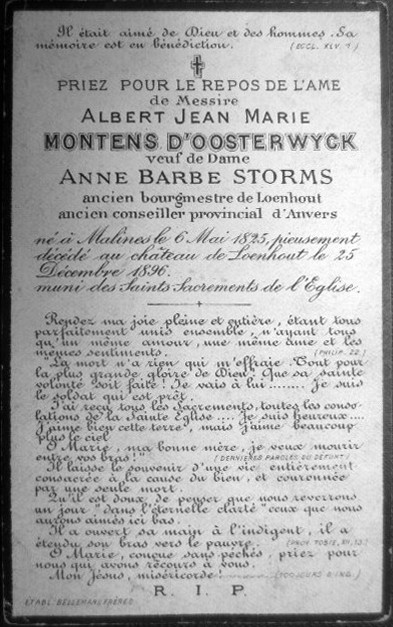 Il était aimé de Dieu et des hommes. Sa
mémoire est en bénédiction. (ECCL. XLV. 1.)
PRIEZ POUR LE REPOS DE L'AME
de Messire
ALBERT JEAN MARIE
MONTENS D'OOSTERWYCK
veuf de Dame
ANNE BARBE STORMS
ancien bourgmestre de Loenhout
ancien conseiller provincial d'Anvers
né à Malines le 6 Mai 1825, pieusement
décédé au château de Loenhout le 25
Décembre 1896.
muni des Saints Sacrements de l'Eglise.
Rendez ma joie pleine et entière, étant tous
parfaitement unis ensemble, n'ayant tous
qu'un même amour, une même âme et les
mêmes sentiments. (PHILIP. 22.)
La mort n'a rien qui m'effraie. Tout pour
la plus grande gloire de Dieu! Que sa sainte
volonté soit faite! Je vais à lui ........ Je suis
le soldat qui est prêt.
J'ai reçu tous les Sacrements, toutes les conso-
lations de la Sainte Eglise .... Je suis heureux ....
J'aime bien cette terre, mais j'aime beaucoup
plus le ciel
O Marie, ma bonne mère, je veux mourir
entre vos bras! (DERNIÈRES PAROLES DU DÉFUNT)
Il laisse le souvenir d'une vie entièrement
consacrée à la cause du bien, et couronnée
par une seule mort.
Qu'il est doux de penser que nous reverrons
un jour "dans l'éternelle clarté" ceux que nous
aurons aimés ici bas.
Il a ouvert sa main à l'indigent, il a
étendu son bras vers le pauvre. (PROV. TOBIE, XV, 13.)
O Marie, conçue sans péchés, priez pour
nous qui avons recours à vous.
Mon Jésus, miséricorde! (TOUJOURS D'IND.)
R. I. P.
ETABL. BELLEMANS FRÈRES